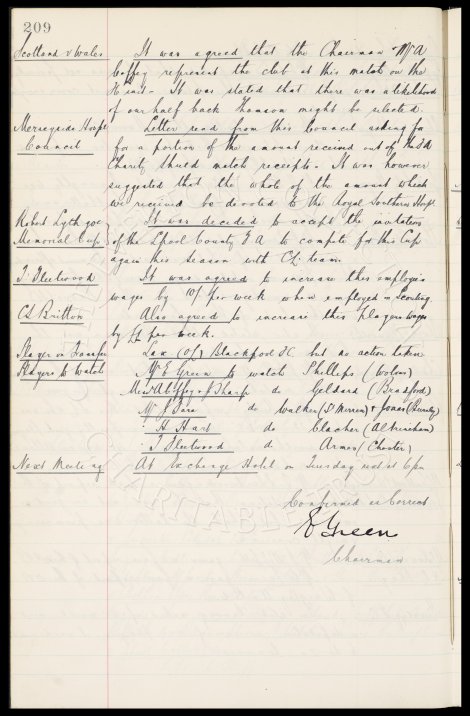 209
Scotland v Wales It was agreed that the Chairman & Mr A
Coffey represent the club at this match on the
It was stated that there was a likelihood
of our half back Thomson might be selected.
Merseyside Hospt Letter read from this Council asking for
Council for a portion of the amount received out of
Charity Shield match receipts. It was however
suggested that the whole of the amount which
we received be devoted to the Royal Southern Hospt
Robert Lythgoe It was decided to accept the invitation
Memorial Cup of the Lpool County F A to compete for this Cup
again this season with team.
T. Fleetwood It was agreed to increase this employee's
wages by 10/- per week when employed in scouting
C S Britton Also agreed to increase this players wages
by £1 per week.
Player on Transfer Lax (of) Blackpool FC but no action taken
Players to Watch Mr E Green to watch Phillips (Wolves)
Mess A Coffey & J Sharp do Geldard (Bradford)
Mr do Walker (St Mirren) & Jones
" H Hart do Clacher (Altrincham)
" T Fleetwood do Armes (Chester)
Next Meeting At Exchange Hotel on Tuesday next at 6pm
Confirmed as Correct
E Green
Chairman